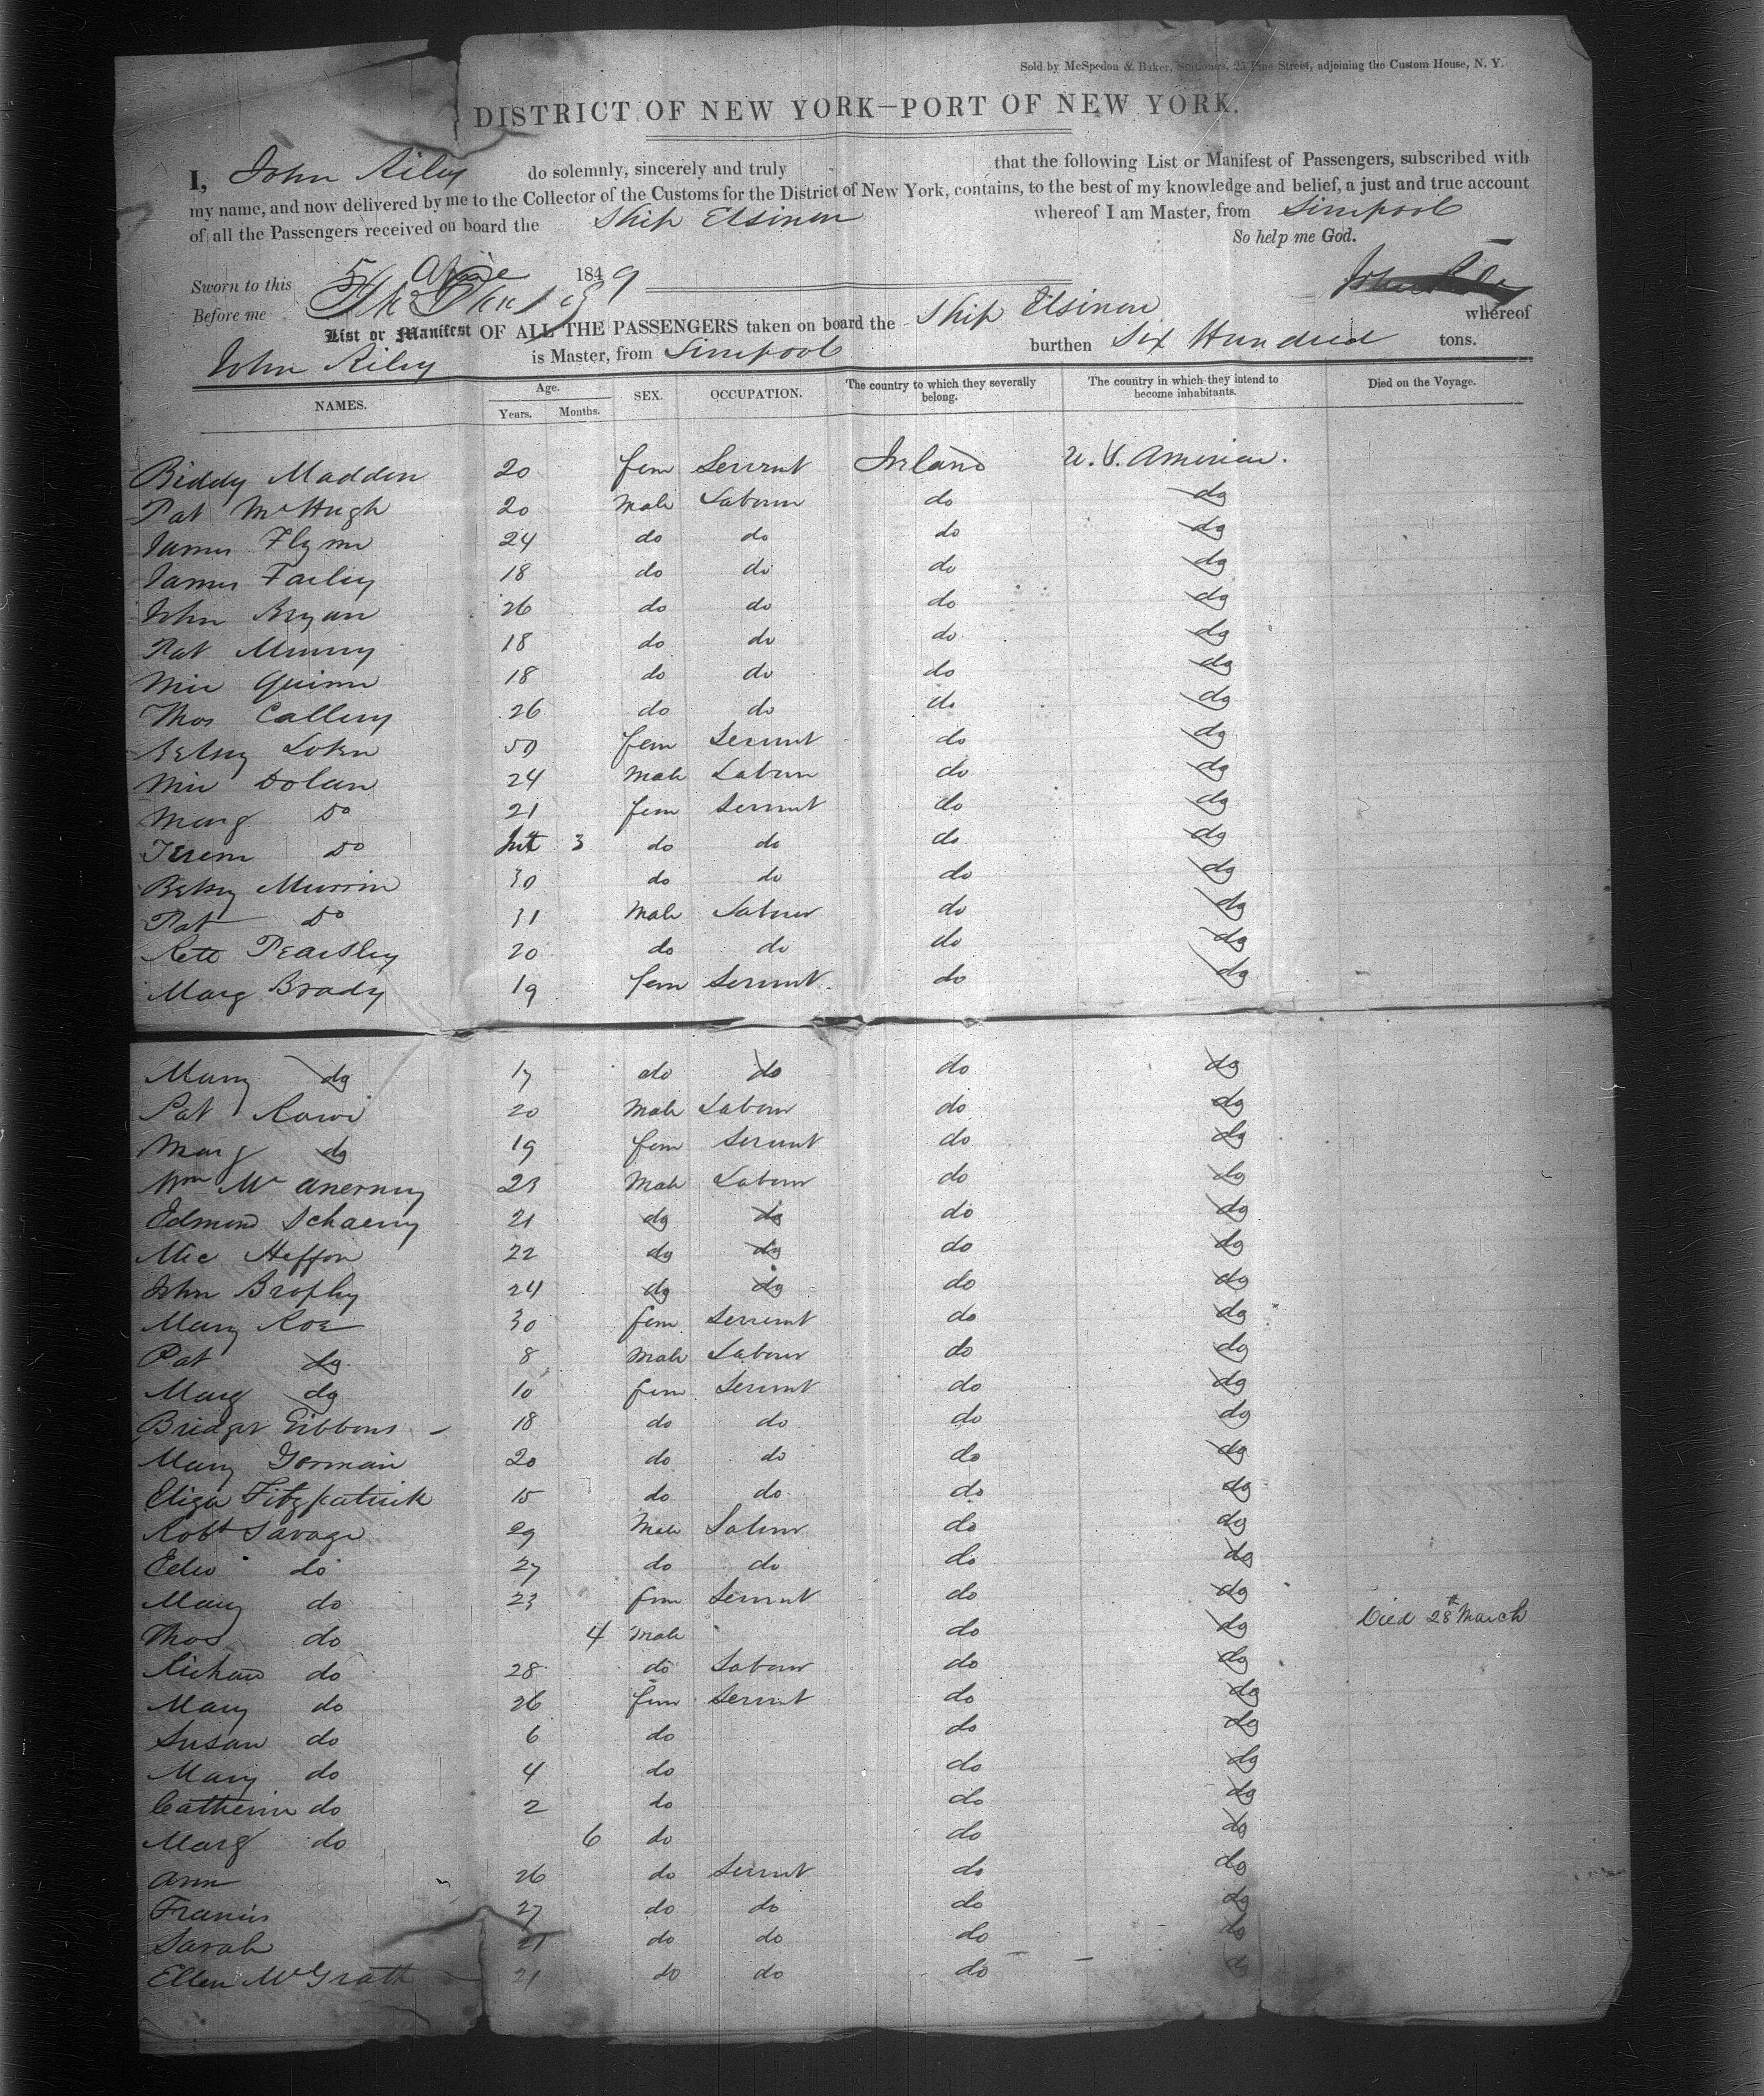 Sold by McSpedon & Baker, Stationers, 25 Pine Street, adjoining the Custom House, N. Y.
DISTRICT OF NEW YORK—PORT OF NEW YORK.
I, John Riley do solemnly, sincerely and truly that the following List or Manifest of Passengers, subscribed with
my name, and now delivered by me to the Collector of the Customs for the District of New York, contains, to the best of my knowledge and belief, a just and true account
of all the Passengers received on board the Ship Elsinore whereof I am Master, from Liverpool
So help me God.
Sworn to this 5 April 1849
Before me
John Riley
List or Manifest OF ALL THE PASSENGERS taken on board the Ship Elsinore whereof
John Riley is Master, from Liverpool burthen Six Hundred tons.
NAMES. Age. Years. Months. SEX. OCCUPATION. The country to which they severally belong. The country in which they intend to become inhabitants. Died on the Voyage.
Biddy Madden 20 fem Servant Ireland U. S. America.
Pat McHugh 20 Male Labourer do do
James Flynn 24 do do do do
James Farley 18 do do do do
John Bryan 26 do do do do
Pat Murray 18 do do do do
Mic Quinn 18 do do do do
Thos Callery 26 do do do do
Betsy 50 fem Servant do do
Mic Dolan 24 Male Labour do do
Marg Do 21 fem Servant do do
Do Inft 3 do do do do
Betsy Murrin 30 do do do do
Pat Do 31 Male Labour do do
Peardsley 20 do do do do
Marg Brady 19 fem Servant do do
Mary do 17 do do do do
Pat Rowe 20 Male Labour do do
Marg do 19 fem Servant do do
Wm McAnerny 23 Male Labour do do
Edmond 21 do do do do
Mic Heffron 22 do do do do
John Brophy 24 do do do do
Mary Roe 30 fem Servant do do
Pat do 8 Male Labour do do
Marg do 10 fem Servant do do
Bridget Gibbons 18 do do do do
Mary Gorman 20 do do do do
Eliza Fitzpatrick 15 do do do do
Robt Savage 29 Male Labour do do
Edw do 27 do do do do
Mary do 23 fem Servant do do
Thos do 4 Male do do Died 28th March
Richard do 28 do Labour do do
Mary do 26 fem Servant do do
Susan do 6 do do do
Mary do 4 do do do
Catherine do 2 do do do
Marg do 6 do do do
Ann 26 do Servant do do
Francis 27 do do do do
Sarah 21 do do do do
Ellen McGrath 21 do do do do